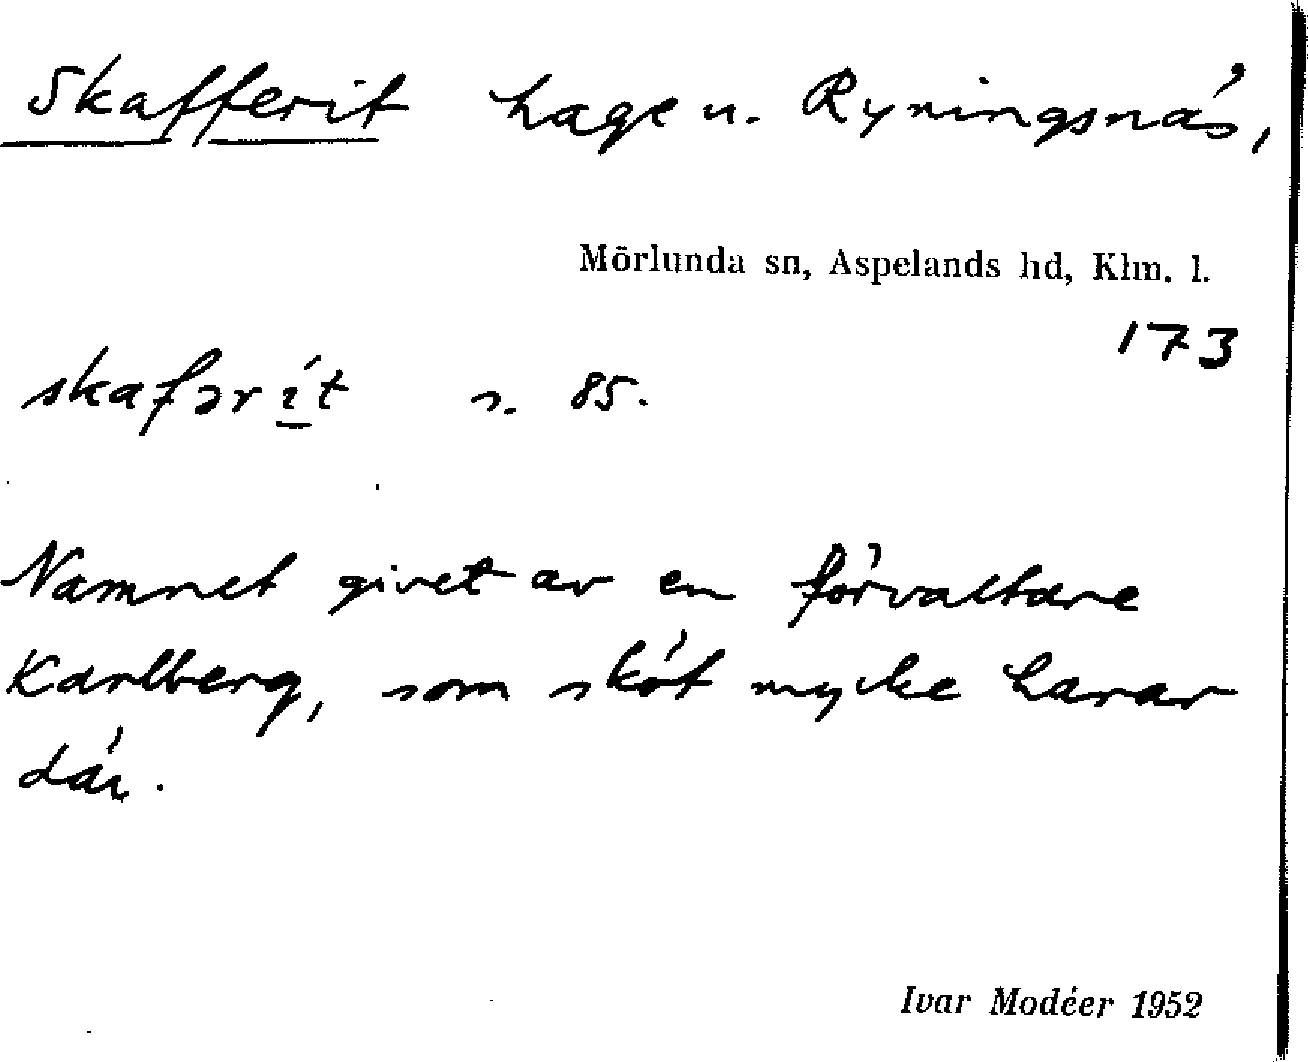 Skafferit hage u. Ryningsnäs,
Mörlunda sn, Aspelands hd, Klm. l.
173
skafərít s. 85.
Namnet givet av en förvaltare
Karlberg, som sköt mycke harar
där.
Ivar Modéer 1952